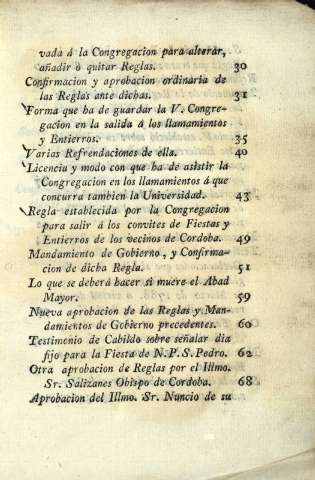 vada á la Congregacion para alterar,
añadir ò quitar Reglas. 30
Confirmacion y aprobacion ordinaria de
las Reglas ante dichas. 31
Forma que ha de guardar la V. Congre-
gacion en la salida á los llamamientos
y Entierros. 35
Varias Refrendaciones de ella. 40
Licencia y modo con que ha de asistir la
Congregacion en los llamamientos á que
concurra tambien la Universidad. 43
Regla establecida por la Congregacion
para salir á los convites de Fiestas y
Entierros de los vecinos de Cordoba. 49
Mandamiento de Gobierno, y Confirma-
cion de dicha Regla. 51
Lo que se deberá hacer si muere el Abad
Mayor. 59
Nueva aprobacion de las Reglas y Man-
damientos de Gobierno precedentes. 60
Testimonio de Cabildo sobre señalar dia
fijo para la Fiesta de N. P. S. Pedro. 62
Otra aprobacion de Reglas por el Illmo.
Sr. Salizanes Obispo de Cordoba. 68
Aprobacion del Illmo. Sr. Nuncio de su